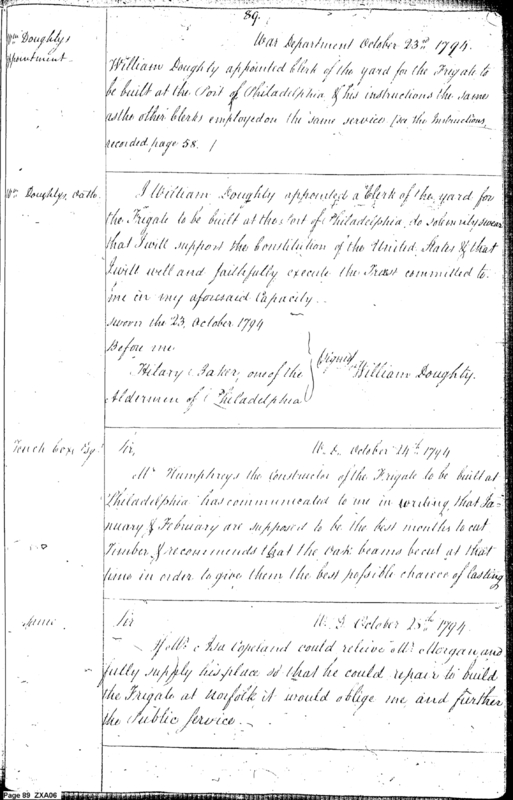 89.
Wm Doughty's
appointment
War Department October 23rd 1794.
William Doughty appointed Clerk of the yard for the Frigate to
be built at the Port of Philadelphia & his instructions the same
as the other Clerks employed on the same service (see the Instructions,
recorded page 58. /
Wm Doughty's Oath
I William Doughty appointed a Clerk of the yard for
the Frigate to be built at the Port of Philadelphia, do solemnly swear
that I will support the Constitution of the United States & that
I will well and faithfully execute the Trust committed to
me in my aforesaid Capacity.
sworn the 23, October 1794
Before me
Hilary Baker, one of the
Aldermen of Philadelphia
(Signed William Doughty.
Tench Coxe Esqr
Sir, W. D. October 24th 1794
Mr Humphreys the Constructor of the Frigate to be built at
Philadelphia has communicated to me in writing that Ja-
nuary & February are supposed to be the best months to cut
Timber, & recommends that the Oak beams be cut at that
time in order to give them the best possible chance of lasting
same
Sir W. D. October 25th 1794.
If Mr Asa Copeland could relieve Mr Morgan, and
fully supply his place so that he could repair to build
the Frigate at Norfolk it would oblige me and further
the Public Service.
Page 89 ZXA06